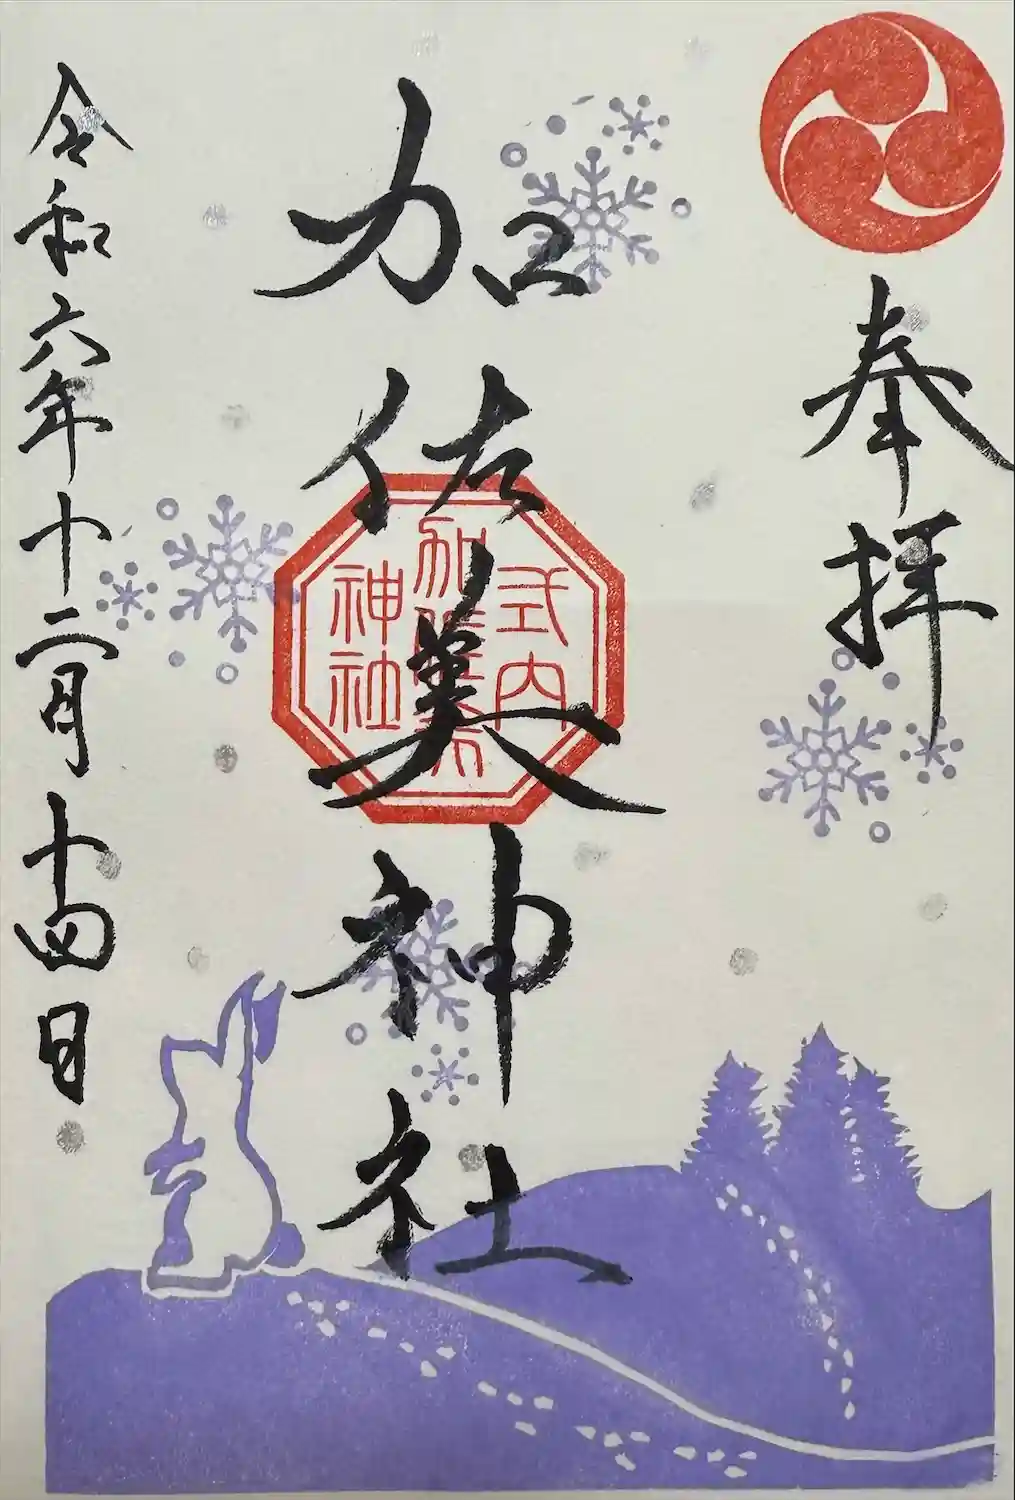 奉拝
加佐美神社
式内
加
神社
令和六年十二月十四日